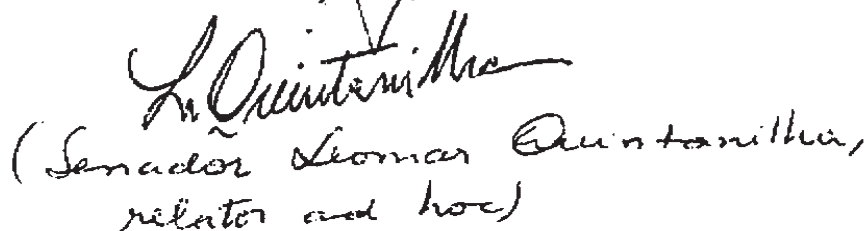 L. Quintanilha
(Senador Leomar Quintanilha,
relator ad hoc)